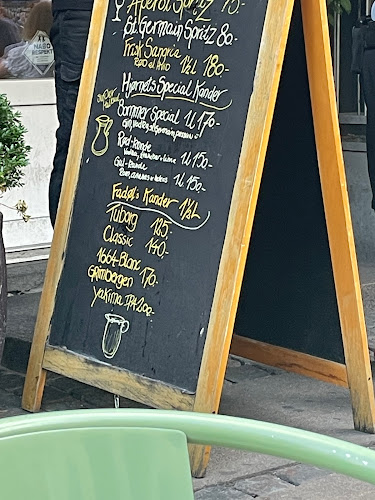 Aperol Spritz 75-
St. Germain Spritz 80-
Frisk Sangria
Rød el. hvid 1½L 180-
Hjørnet's Special Kander
Sommer Special 1L 170-
Rød-kande 1L 150-
Gul-kande 1L 150-
Fadøl's Kander 1½L
Tuborg 125-
Classic 140-
1664 Blanc
Grimbergen 170-
Yakima IPA 200-
NABO
RESPEKT